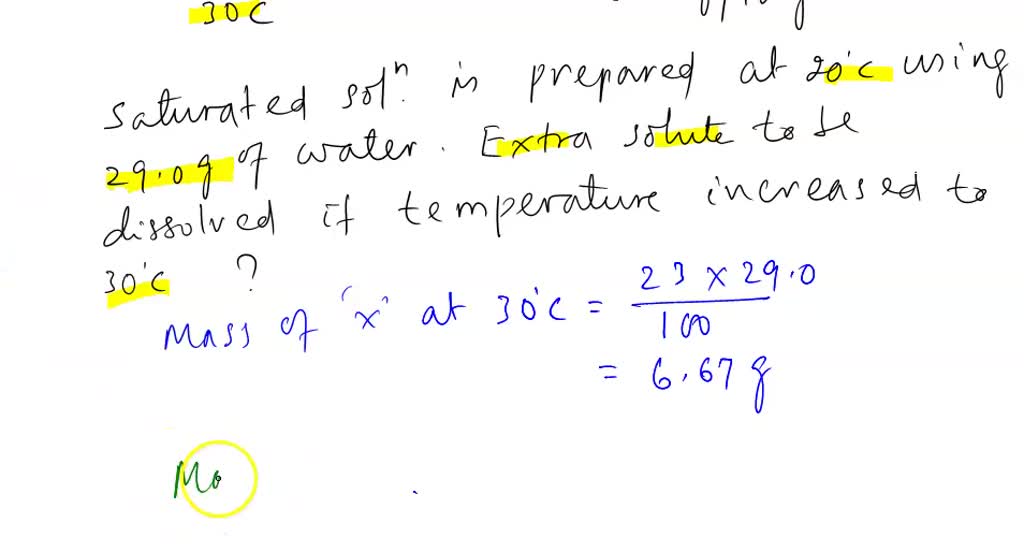 30C
saturated solⁿ. is prepared at 20°C using
29.0g of water. Extra solute to be
dissolved if temperature increased to
30°C ?
Mass of 'x' at 30°C = 23 x 29.0
100
= 6.67 g
Ma